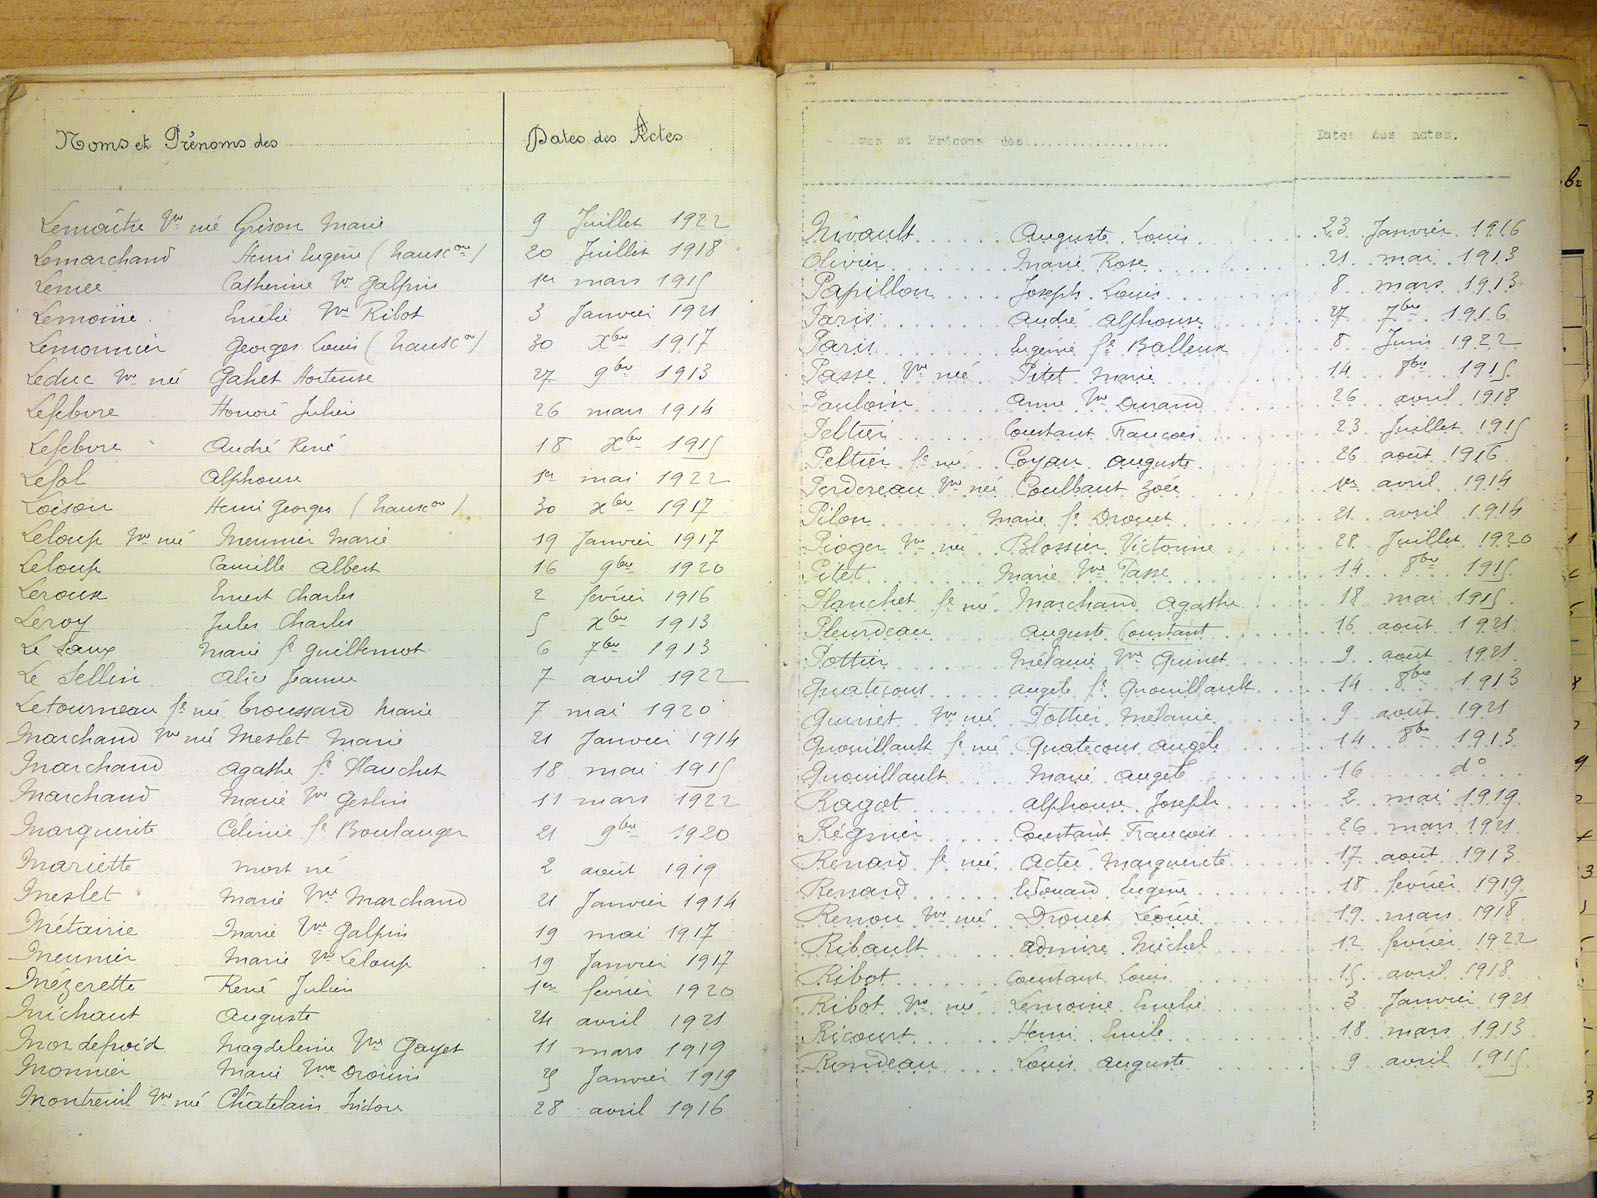 Noms et Prénoms des
Dates des Actes
Lemaître Vve née Grison Marie 9 Juillet 1922
Lemarchand Henri Eugène (transcon) 20 Juillet 1918
Lemée Catherine Ve Galpin 1er mars 1915
Lemoine Emélie Vve Ribot 3 Janvier 1921
Lemonnier Georges Louis (transcon) 30 Xbre 1917
Leduc Vve née Gahet Hortense 27 9bre 1913
Lefebvre Honoré Julien 26 mars 1914
Lefebvre André René 18 Xbre 1915
Lefol Alphonse 1er mai 1922
Loison Henri Georges (transcon) 30 Xbre 1917
Leloup Vve née Meunier Marie 19 Janvier 1917
Leloup Camille Albert 16 9bre 1920
Leroux Ernest Charles 2 février 1916
Leroy Jules Charles 5 Xbre 1913
Le Saux Marie fe Guillemot 6 7bre 1913
Le Sellin Alice Jeanne 7 avril 1922
Letourneau fe née Broussard Marie 7 mai 1920
Marchand Vve née Meslet Marie 21 Janvier 1914
Marchand Agathe fe Planchet 18 mai 1915
Marchand Marie Vve Geslin 11 mars 1922
Marguerite Célinie fe Boulanger 21 9bre 1920
Mariette mort né 2 août 1919
Meslet Marie Vve Marchand 21 Janvier 1914
Métairie Marie Vve Galpin 19 mai 1917
Meunier Marie Vve Leloup 19 Janvier 1917
Mézerette René Julien 1er février 1920
Michaut Auguste 24 avril 1921
Mondefroid Magdeleine Vve Gayet 11 mars 1919
Monnier Marie Vve Drouin 25 Janvier 1919
Montreuil Vve née Châtelain Isidore 28 avril 1916
oms et Prénoms des
Dates des actes.
Nivault Auguste Louis 23 Janvier 1916
Olivier Marie Rose 21 mai 1913
Papillon Joseph Louis 8 mars 1913
Paris André Alphonse 27 7bre 1916
Paris Eugénie fe Balleux 8 Juin 1922
Passe Vve née Pitet Marie 14 8bre 1915
Pauloin Anne Vve Durand 26 avril 1918
Peltier Constant François 23 Juillet 1915
Peltier fe née Coyau Auguste 26 août 1916
Perdereau Vve née Coulbaut Zoée 1er avril 1914
Pilon Marie fe Drouet 21 avril 1914
Pioger Vve née Blossier Victorine 28 Juillet 1920
Pitet Marie Vve Passe 14 8bre 1915
Planchet fe née Marchand Agathe 18 mai 1915
Pleurdeau Auguste Constant 16 août 1921
Pottier Mélanie Vve Quinet 9 août 1921
Quatesous Angèle fe Quouillault 14 8bre 1913
Quinet Vve née Pottier Mélanie 9 août 1921
Quouillault fe née Quatesous Angèle 14 8bre 1913
Quouillault Marie Angèle 16 do
Ragot Alphonse Joseph 2 mai 1919
Régnier Constant François 26 mars 1921
Renard fe née Actée Marguerite 17 août 1913
Renard Edouard Eugène 18 février 1919
Renou Vve née Drouet Léonie 19 mars 1918
Ribault Admire Michel 12 février 1922
Ribot Constant Louis 15 avril 1918
Ribot Vve née Lemoine Emélie 3 Janvier 1921
Ricourt Henri Emile 18 mars 1913
Rondeau Louis Auguste 9 avril 1915